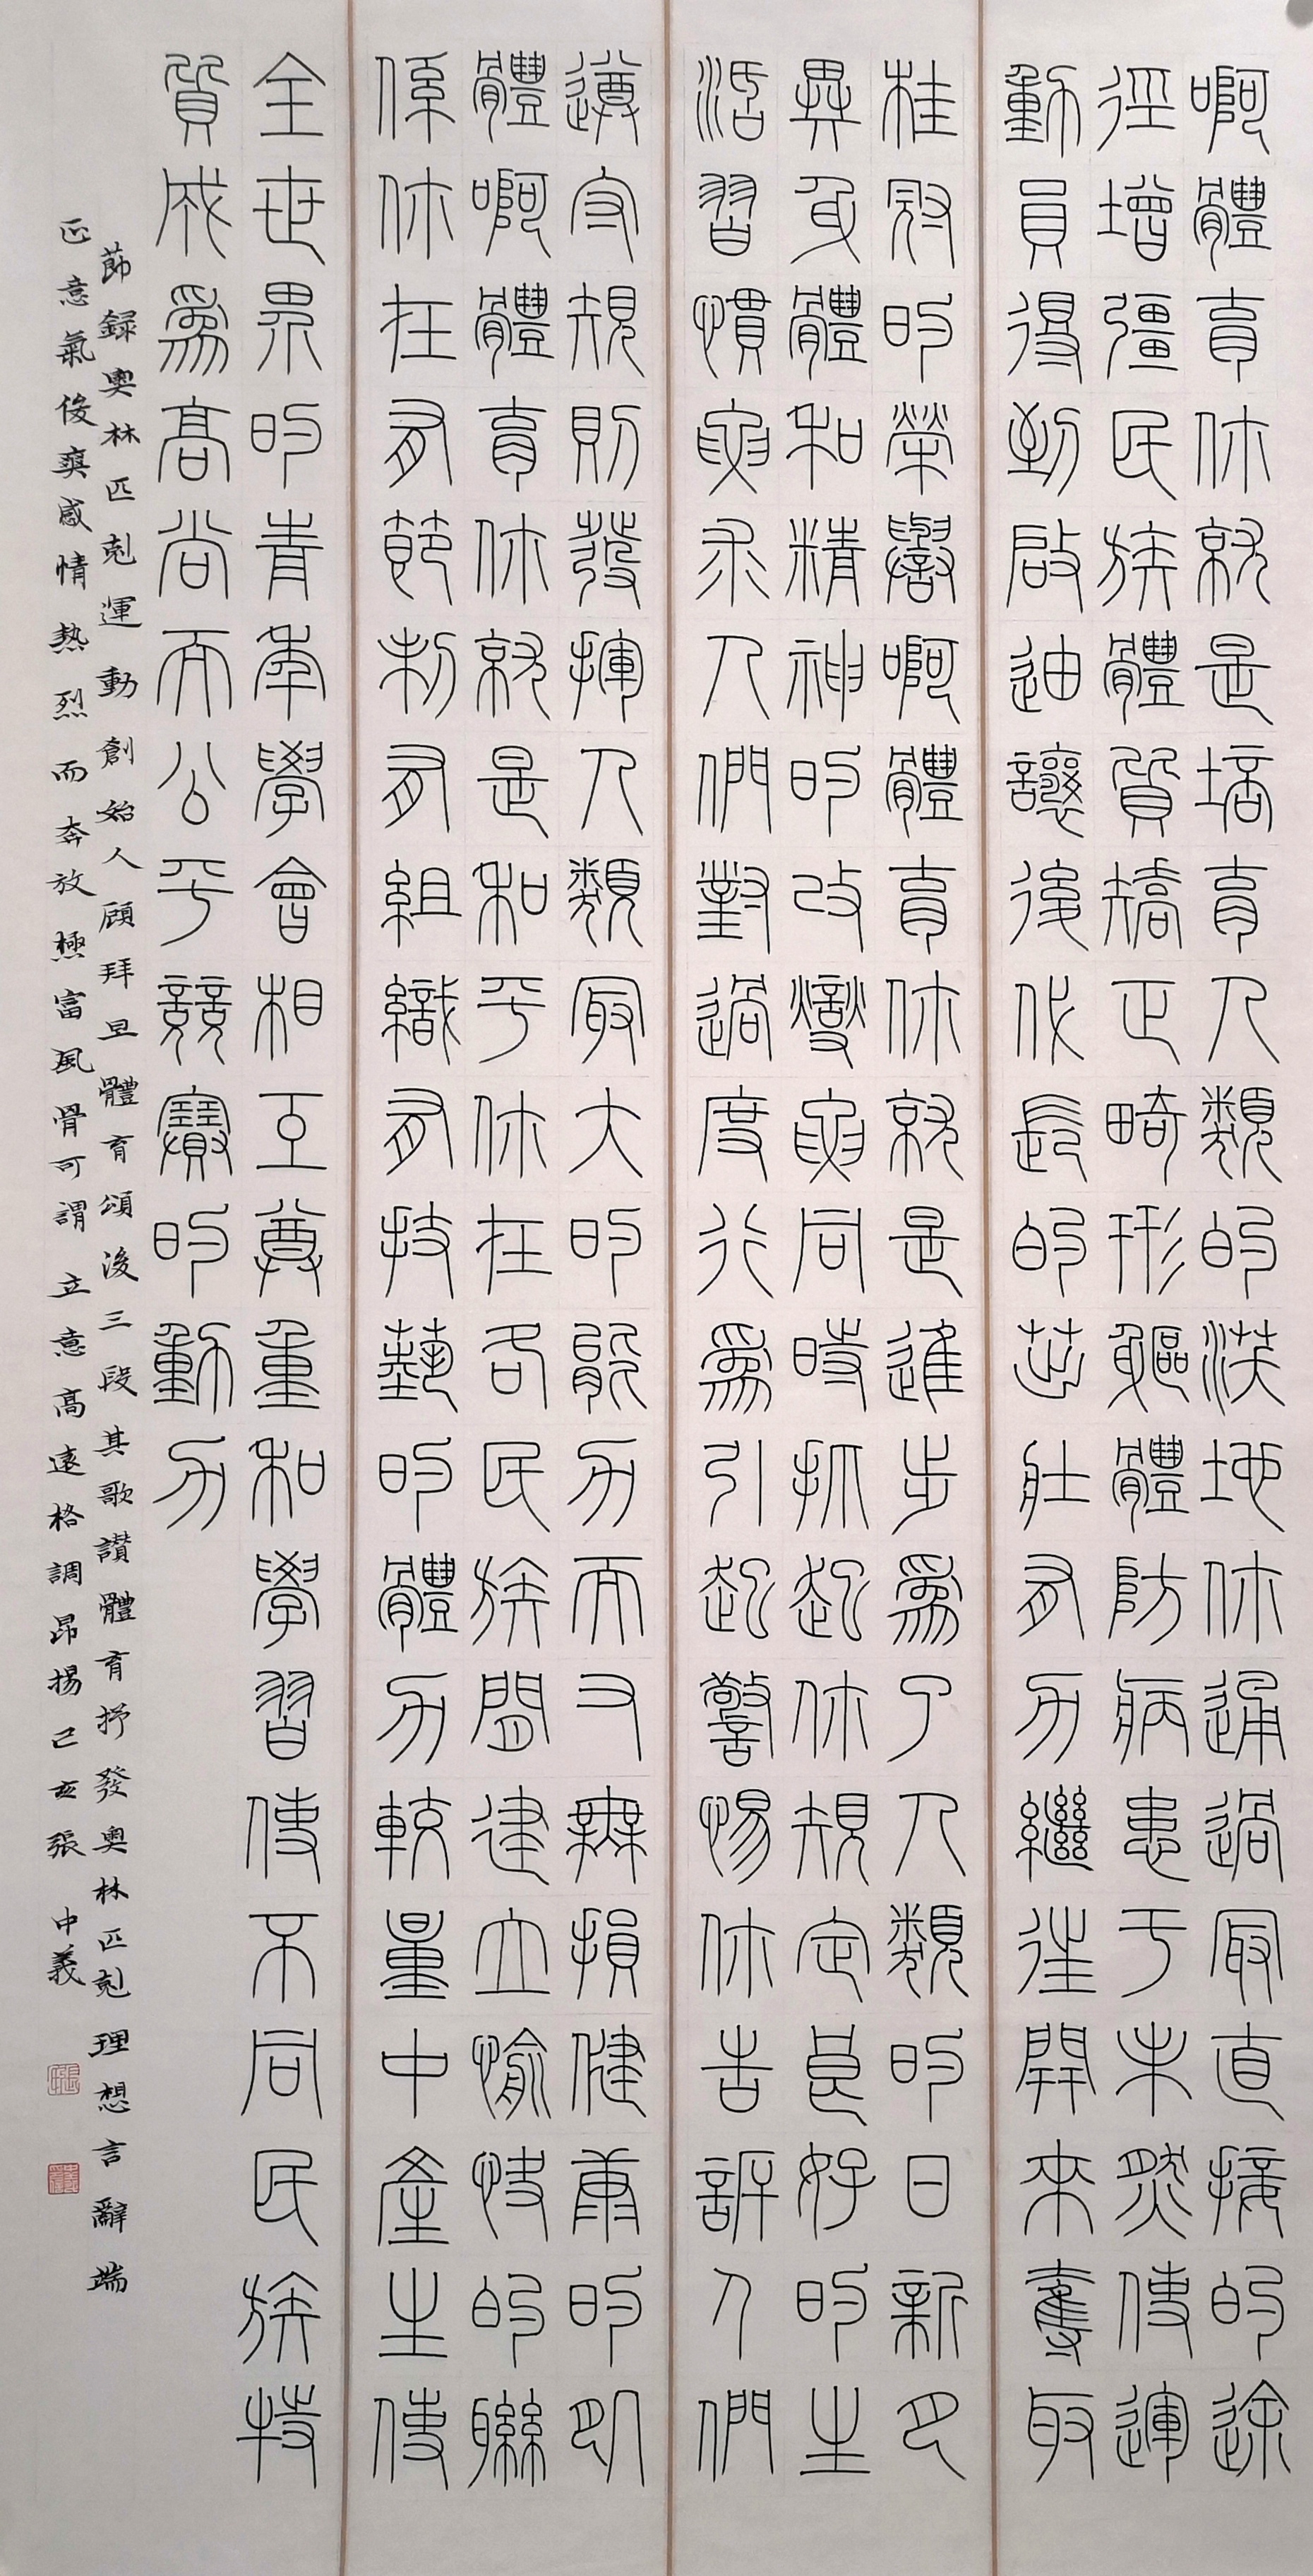 啊體育你就是培育人類的沃地你通過最直接的途
徑增彊民族體質矯正畸形軀體防病患于未然使運
動員得到啟迪讓後代長的茁壯有力繼往開來奪取
桂冠的榮譽啊體育你就是進步爲了人類的日新月
異身體和精神的改變要同時抓起你規定良好的生
活習慣要求人們對過度行爲引起警惕你告訴人們
遵守規則發揮人類最大的能力而又無損健康的肌
體啊體育你就是和平你在各民族間建立愉快的聯
係你在有節制有組織有技藝的體力較量中產生使
全世界的青年學會相互尊重和學習使不同民族特
質成爲高尚而公平競賽的動力
節録奧林匹剋運動創始人顧拜旦體育頌後三段其歌讃體育抒發奧林匹剋理想言辭端
正意氣俊爽感情熱烈而奔放極富風骨可謂立意高遠格調昂揚己亥張中義